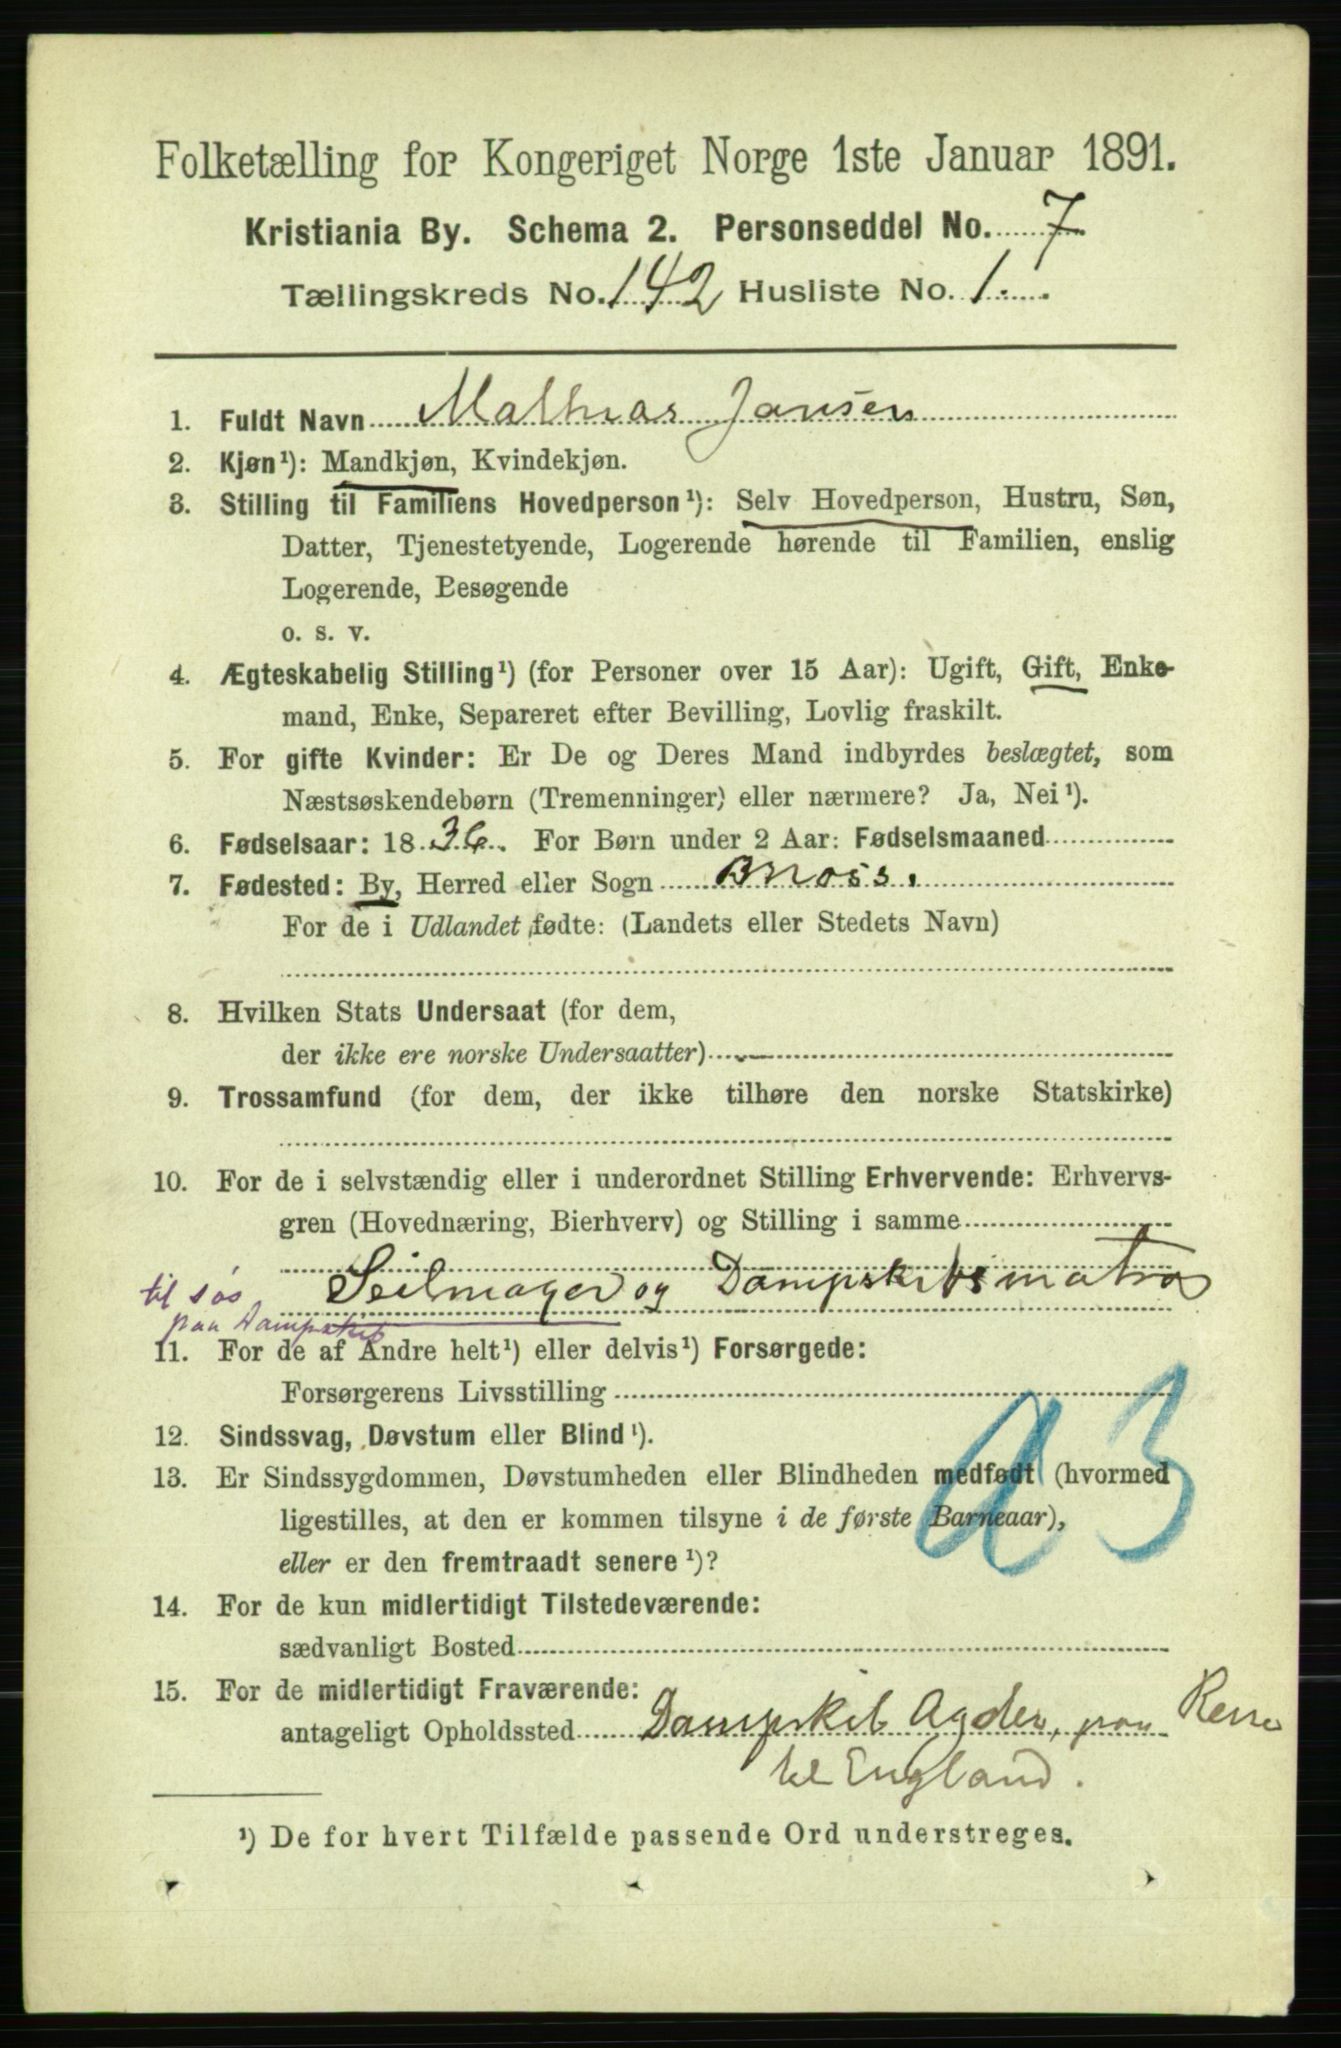 Folketælling for Kongeriget Norge 1ste Januar 1891.
Kristiania By. Schema 2. Personseddel No. 7
Tællingskreds No. 142 Husliste No. 1
1. Fuldt Navn Mathias Jansen
2. Kjøn¹): Mandkjøn, Kvindekjøn.
3. Stilling til Familiens Hovedperson¹): Selv Hovedperson, Hustru, Søn,
Datter, Tjenestetyende, Logerende hørende til Familien, enslig
Logerende, Besøgende
o. s. v.
4. Ægteskabelig Stilling¹) (for Personer over 15 Aar): Ugift, Gift, Enke-
mand, Enke, Separeret efter Bevilling, Lovlig fraskilt.
5. For gifte Kvinder: Er De og Deres Mand indbyrdes beslægtet, som
Næstsøskendebørn (Tremenninger) eller nærmere? Ja, Nei¹).
6. Fødselsaar: 1836. For Børn under 2 Aar: Fødselsmaaned
7. Fødested: By, Herred eller Sogn Moss.
For de i Udlandet fødte: (Landets eller Stedets Navn)
8. Hvilken Stats Undersaat (for dem,
der ikke ere norske Undersaatter)
9. Trossamfund (for dem, der ikke tilhøre den norske Statskirke)
10. For de i selvstændig eller i underordnet Stilling Erhvervende: Erhvervs-
gren (Hovednæring, Bierhverv) og Stilling i samme
til søs Seilmager og Dampskibsmatros
paa Dampskib
11. For de af Andre helt¹) eller delvis¹) Forsørgede:
Forsørgerens Livsstilling
12. Sindssvag, Døvstum eller Blind¹).
13. Er Sindssygdommen, Døvstumheden eller Blindheden medfødt (hvormed
ligestilles, at den er kommen tilsyne i de første Barneaar),
eller er den fremtraadt senere¹)?
a 3
14. For de kun midlertidigt Tilstedeværende:
sædvanligt Bosted
15. For de midlertidigt Fraværende:
antageligt Opholdssted Dampskib Agder, paa Reise
til England.
¹) De for hvert Tilfælde passende Ord understreges.